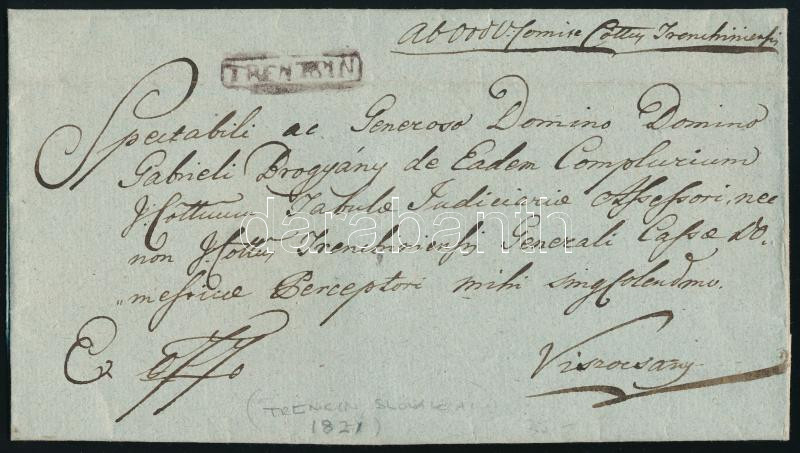 Ab Ord. V. Comite Cottus Trenchiniensis
TRENTSIN
Spectabili ac Generoso Domino Domino
Gabrieli Drogyány de Eadem Complurium
J. Cottuum Tabulæ Judiciariæ Assessori, nec
non J. Cottus Trenchiniensis Generali Cassæ Do,
„mesticæ Perceptori mihi
Ex offo
darabanth
(TRENCIN SLOVAKIA)
1821)